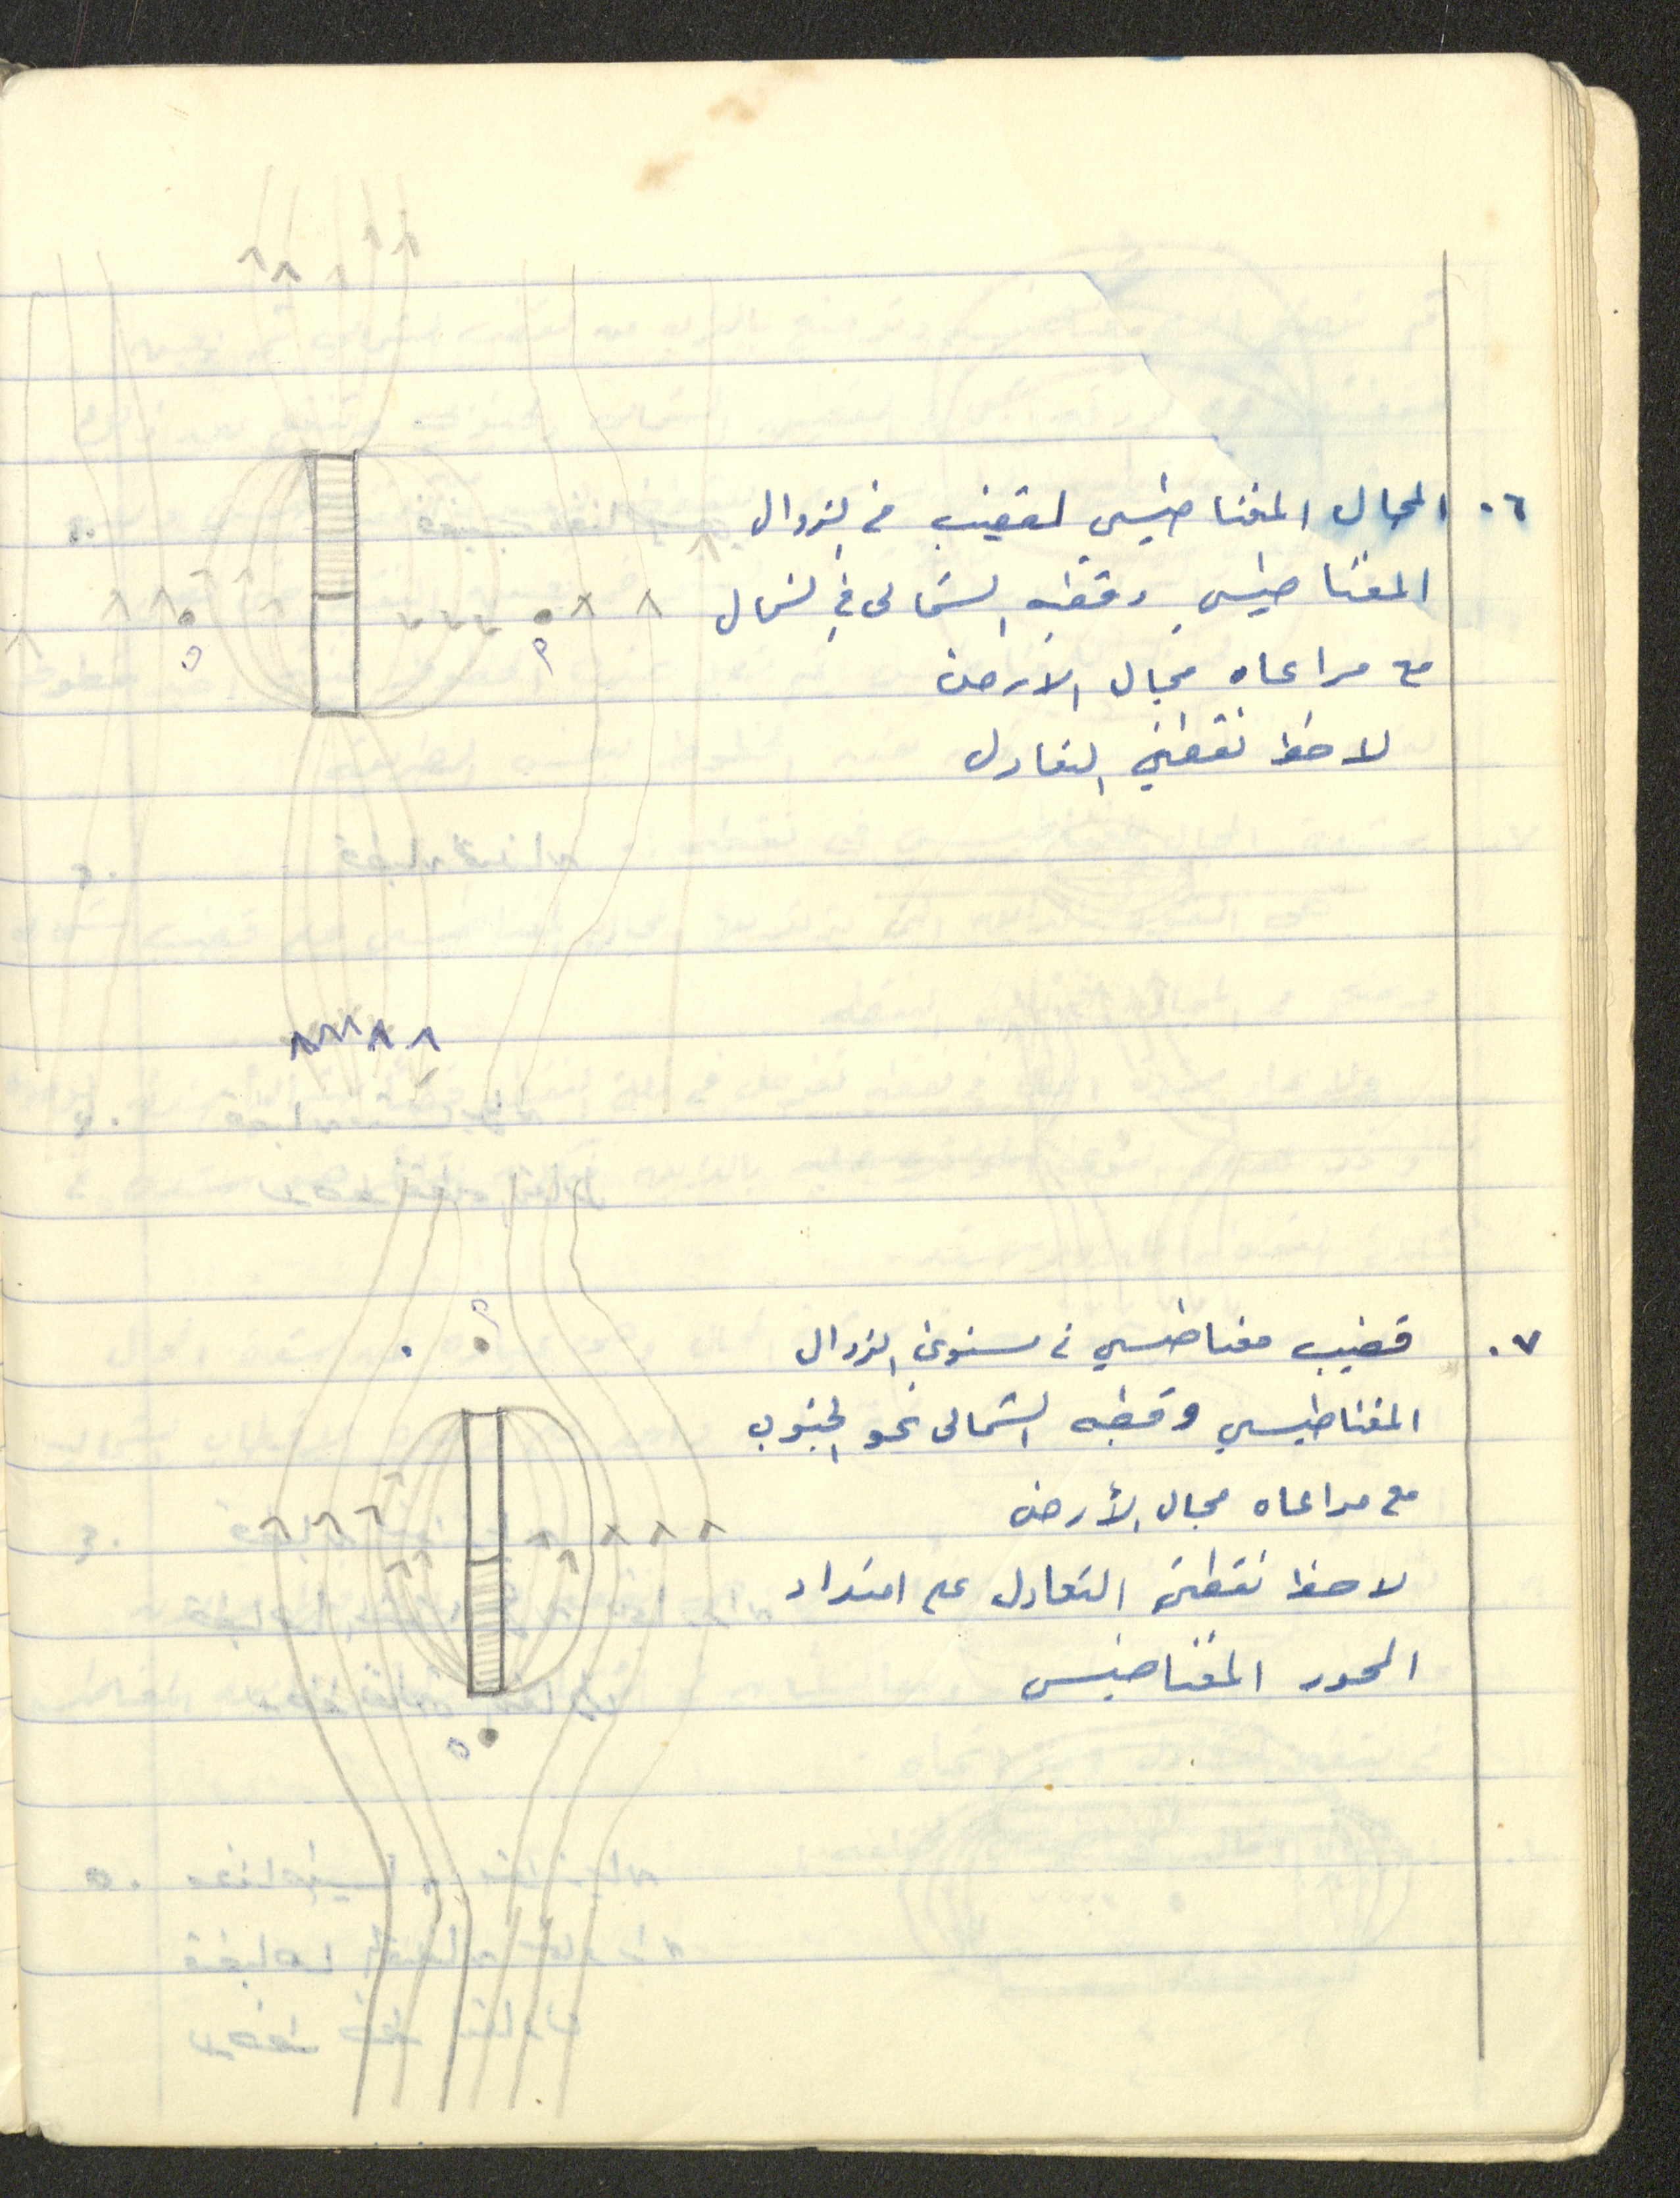 ٦. المجال المغناطيسي لقضيب في الزوال
المغناطيسي وقطبه الشمالى في الشمال
مع مراعاه مجال الارض
لاحظ نقطتي التعادل
٧. قضيب مغناطيسي في مستوى الزوال
المغناطيسي وقطبه الشمالى نحو الجنوب
مع مراعاه مجال الأرض
لاحظ نقطتي التعادل على امتداد
المحور المغناطيسي